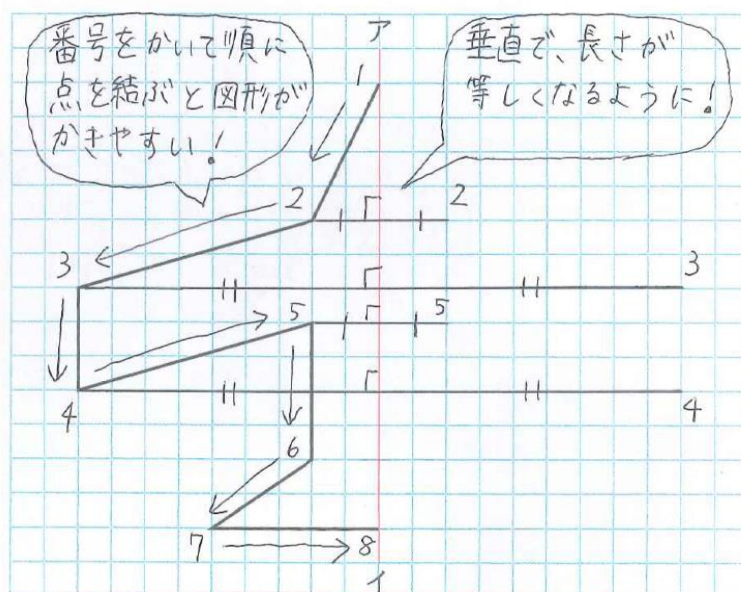 番号をかいて順に
点を結ぶと図形が
かきやすい!
ア
垂直で、長さが
等しくなるように!
1
2
2
3
3
5
5
4
4
6
7
8
イ